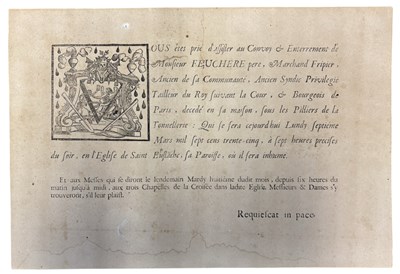 VOUS êtes prié d'assister au Convoy & Enterrement de
Monsieur FEUCHERE pere, Marchand Fripier,
Ancien de sa Communauté, Ancien Syndic Privilegié
Tailleur du Roy suivant la Cour, & Bourgeois de
Paris, decedé en sa maison, sous les Pilliers de la
Tonnellerie : Qui se fera cejourd'huy Lundy septiéme
Mars mil sept cens trente-cinq, à sept heures précises
du soir, en l'Eglise de Saint Eustache, sa Paroisse, où il sera inhumé.
Et aux Messes qui se diront le lendemain Mardy huitiéme dudit mois, depuis six heures du
matin jusqu'à midi, aux trois Chapelles de la Croisée dans ladite Eglise. Messieurs & Dames s'y
trouveront, s'il leur plaist.
Requiescat in pace.